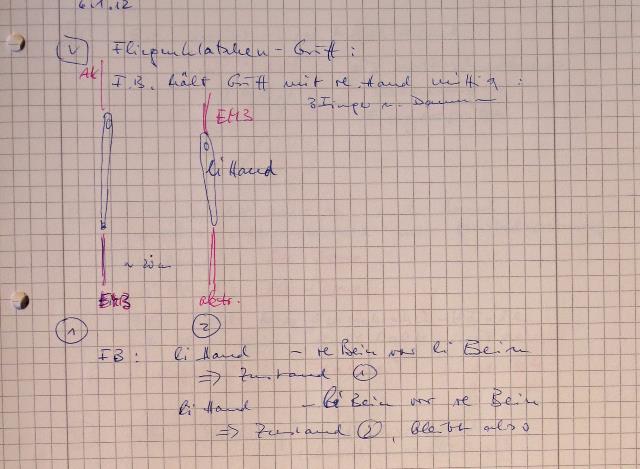 6.1.12
V Fliegenklatschen-Griff:
AK F.B. hält Griff mit re. Hand mittig:
3 Finger u. Daumen
EMB
li Hand
~ 20 cm
EMB abstr.
1 2
FB: li Hand - re Bein vor li Bein
=> Zustand 1
li Hand - li Bein vor re Bein
=> Zustand 2, bleibt also